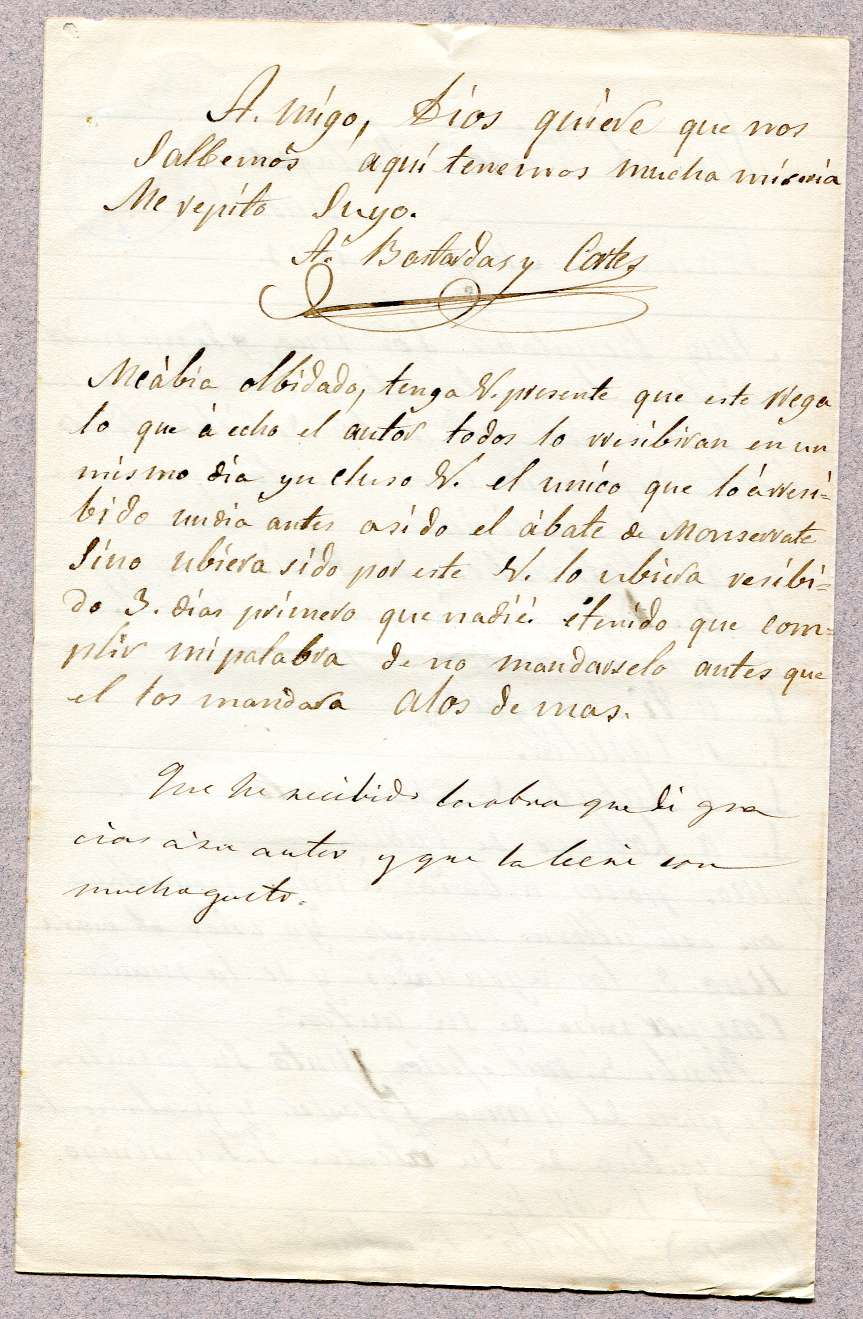 A. migo, Dios quiere que nos
Salbemos aquí tenemos mucha miseria
Me repito Suyo.
A.º Bastardas y Cortes
Me ábia olbidado, tenga V. presente que este rrega
lo que á echo el autor todos lo rresibiran en un
mismo dia yn cluso V. el unico que lo á rresi-
bido un dia antes a sido el ábate de Monserrate
Sino ubiera sido por este V. lo ubiera resibi-
do 3. dias primero que nadié. é tenido que com-
plir mi palabra de no mandarselo antes que
el los mandara Alos de mas.
Que he recibido la obra que di gra
cias á su autor y que la leeré con
mucho gusto.